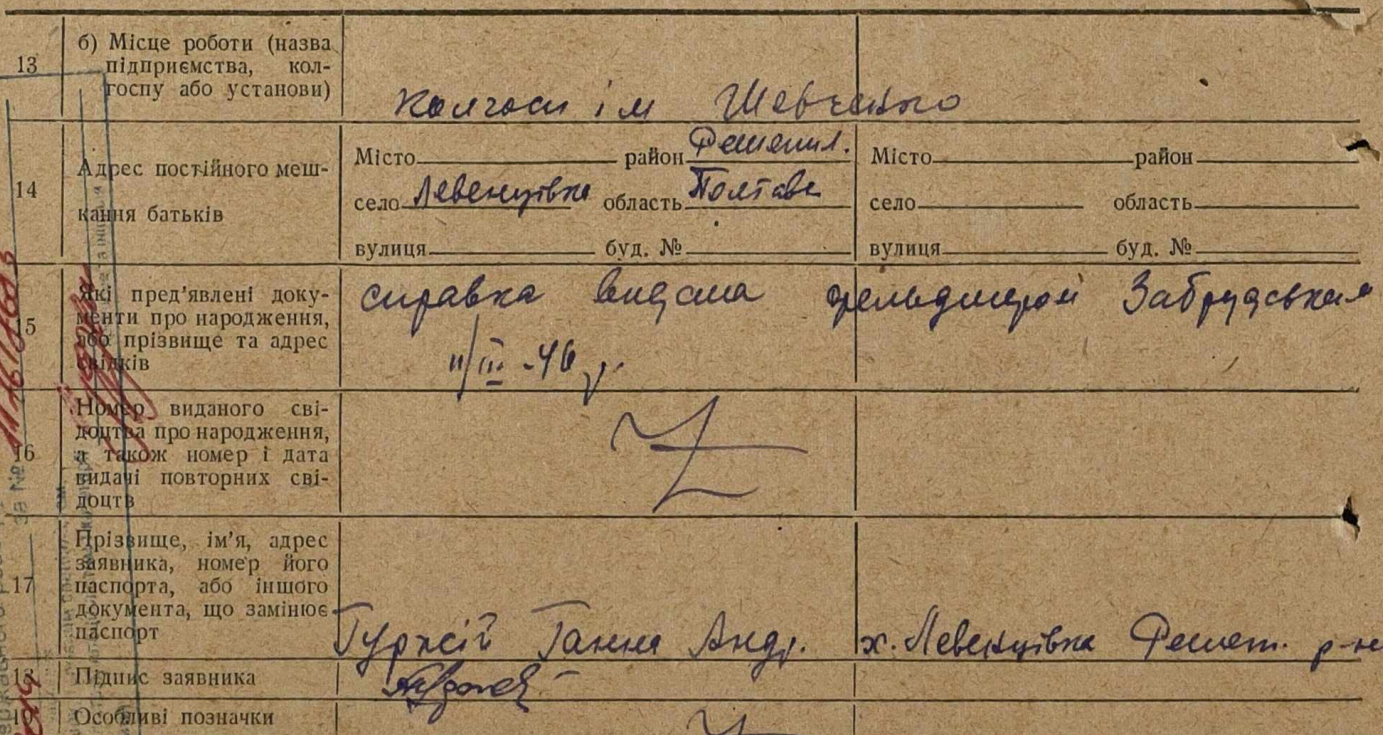 13 б) Місце роботи (назва
підприємства, кол-
госпу або установи)
колгосп ім Шевченко
14 Адрес постійного меш-
кання батьків
Місто район Решетил. Місто район
село Левенцівка область Полтавс село область
вулиця буд. № вулиця буд. №
15 Які пред'явлені доку-
менти про народження,
або прізвище та адрес
свідків
справка видана фельдшером Забрудським
11/III-46 р.
16 Номер виданого сві-
доцтва про народження,
а також номер і дата
видачі повторних сві-
доцтв
17 Прізвище, ім'я, адрес
заявника, номер його
паспорта, або іншого
документа, що замінює
паспорт
Гуржій Ганна Андр. х. Левенцівка Решет. р-н
18 Підпис заявника
19 Особливі позначки
за №